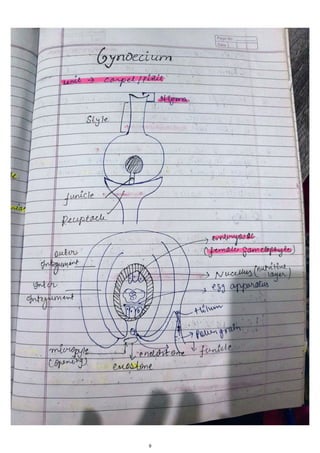 Page No.
Date
Gynoecium
unit → Carpel/Pistil
Stigma
Style
funicle
Receptacle
embryosac
(female gametophyte)
outer
Integument
Nucellus (nutritive
layer)
Inner
Integument
egg apparatus
Hilum
Pollengrain
micropyle
(opening)
endostone
funicle
exostone
9